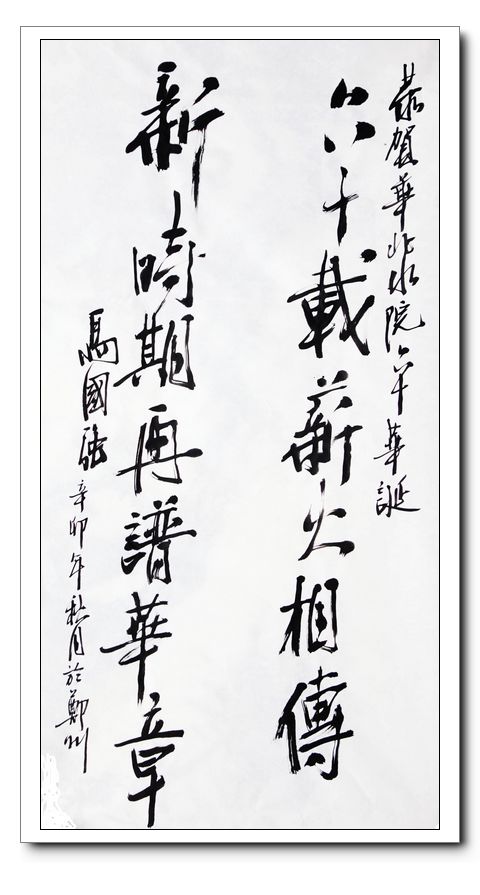 恭賀華北水院六十華誕
六十載薪火相傳
新時期再譜華章
馬國強
辛卯年秋月於鄭州